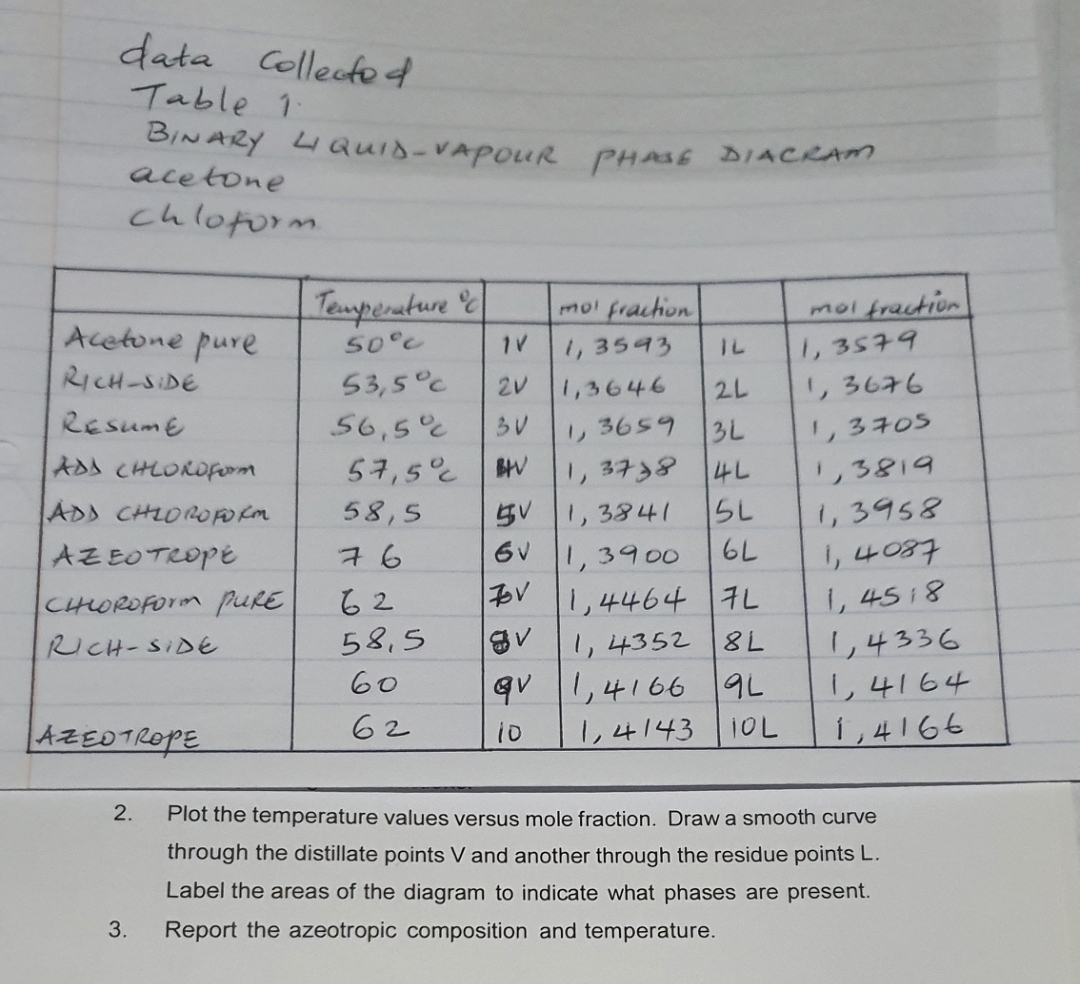 data Collected
Table 1.
BINARY LIQUID-VAPOUR PHASE DIAGRAM
acetone
chloform
Temperature °C mol fraction mol fraction
Acetone pure 50°C 1V 1,3593 1L 1,3579
RICH-SIDE 53,5°C 2V 1,3646 2L 1,3676
RESUME 56,5°C 3V 1,3659 3L 1,3705
ADD CHLOROFORM 57,5°C 4V 4L 1,3819
ADD CHLOROFORM 58,5 5V 1,3841 5L 1,3958
AZEOTROPE 76 6V 1,3900 6L 1,4087
CHLOROFORM PURE 62 7V 1,4464 7L 1,4518
RICH-SIDE 58,5 8V 1,4352 8L 1,4336
60 9V 1,4166 9L 1,4164
AZEOTROPE 62 10 1,4143 10L 1,4166
2. Plot the temperature values versus mole fraction. Draw a smooth curve
through the distillate points V and another through the residue points L.
Label the areas of the diagram to indicate what phases are present.
3. Report the azeotropic composition and temperature.